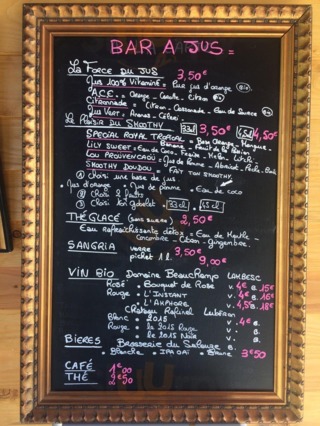 BAR A JUS =
La Force du Jus 3,50€
Jus 100% Vitaminé = Pur jus d'orange Bio
A.C.E. = Orange - Carotte - Citron
Citronnade = Citron - Cassonade - Eau de Source
Jus Vert = Ananas - Céleri
Le Plaisir du Smoothy 33cl 3,50€ 45cl 4,50€
Special Royal Tropical = Orange - Mangue -
Banane - Fruit de la Passion
Lily Sweet = Eau de Coco - Fraise - Melon - Litchi
Lou Prouvençaou = Jus de Pomme - Abricot - Pêche -
Smoothy Doudou = Fait ton smoothy
① Choisi une base de jus
• Jus d'orange • Jus de pomme • Eau de coco
② Choisi 2 fruits
③ Choisi ton gobelet • 33cl • 45cl
Thé Glacé (sans sucre) 2,50€
Eau rafraîchissante détox = Eau de Menthe -
Concombre - Citron - Gingembre.
Sangria verre 3,50€
pichet 1 l 9,00€
Vin Bio Domaine Beauchamp Lambesc
Rosé • Bouquet de Rose v. 4€ B. 15€
Rouge • L'Instant v. 4€ B. 16€
• L'Amphore v. 4,5€ B. 18€
Château Lubéron
Blanc • 2015 v. 4€ B.
Rouge • le 2015 Rouge v. B.
• le 2015 Noir v. B.
Bieres Brasserie du
• Blanche • IPA Oaï • Brune 3€50
Café 1€00
Thé 2€50